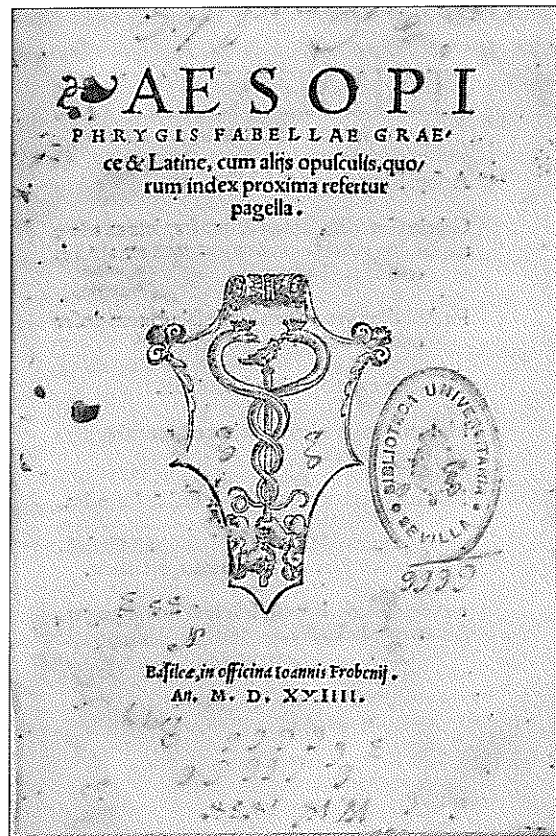 AESOPI
PHRYGIS FABELLAE GRAE,
ce & Latine, cum alijs opuſculis, quo,
rum index proxima refertur
pagella.
BIBLIOTECA UNIVERSITARIA
SEVILLA
Baſileæ, in officina Ioannis Frobenij.
An. M. D. XXIIII.